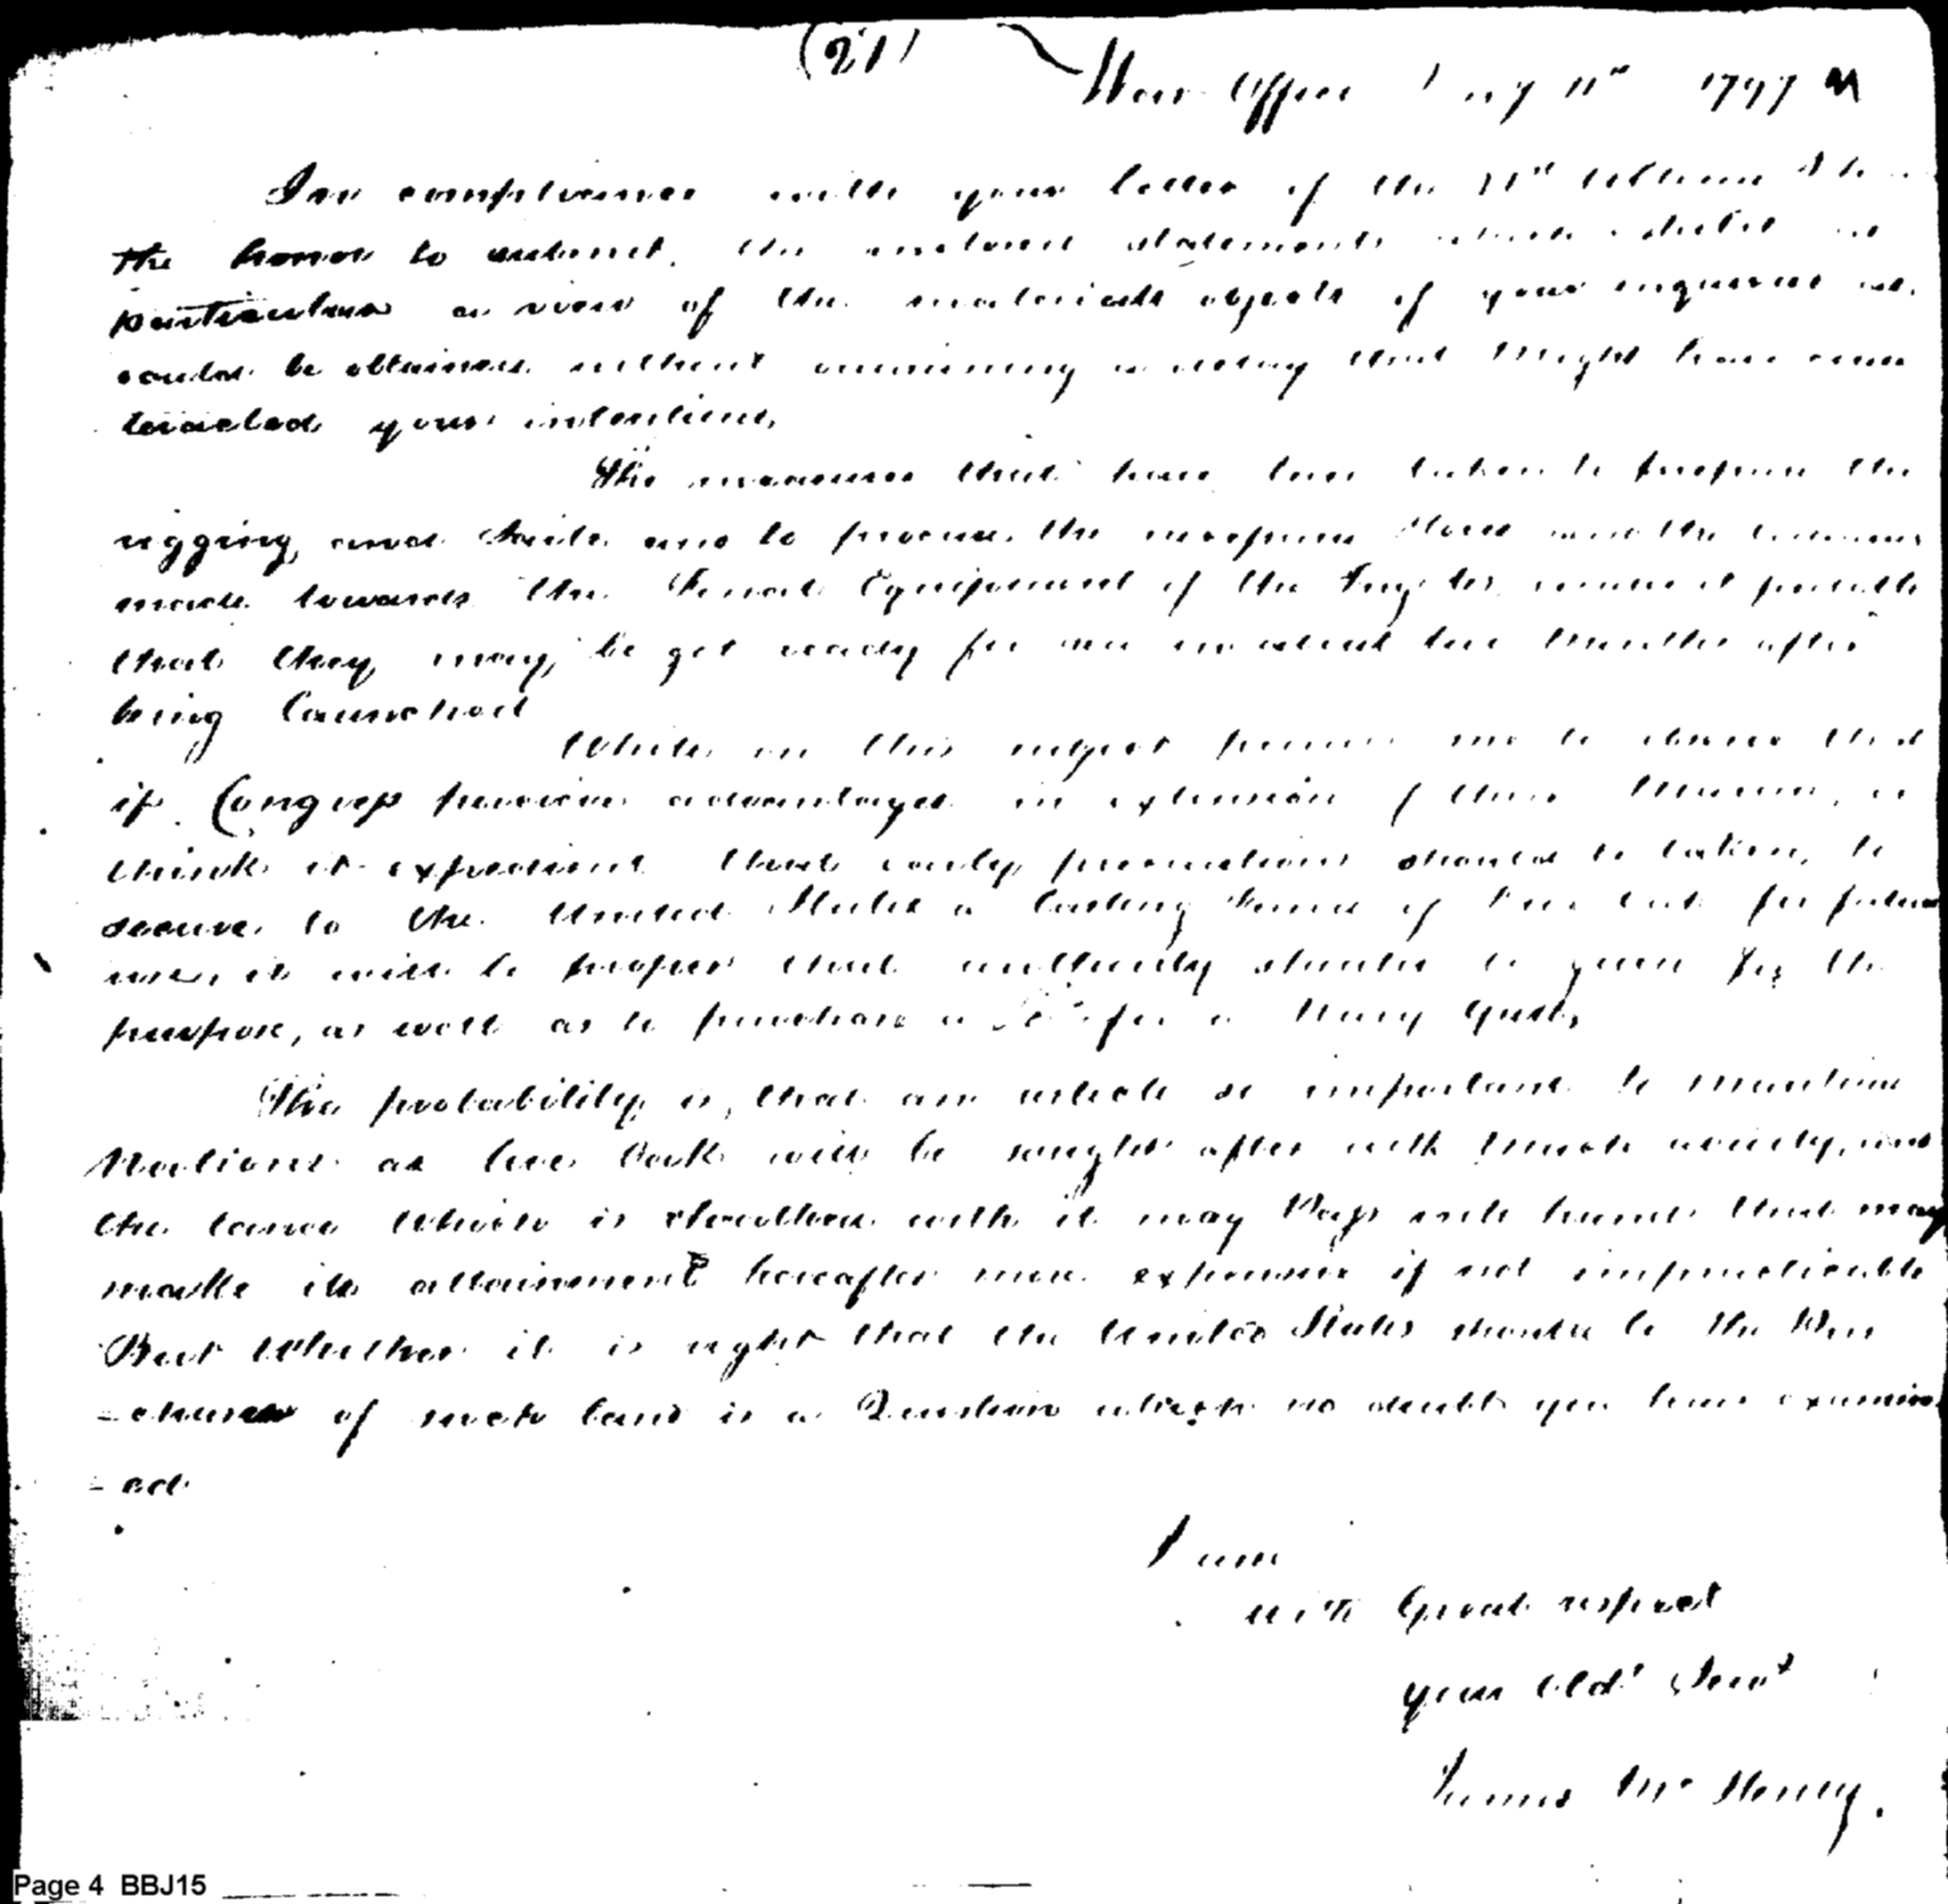 (21)
War Office 11th 1797
In compliance with your letter of the Ultimo I
the honor to submit, the enclosed statements which exhibit as
particular a view of the materials objects of your inquiries as
could be obtained without occasioning a delay that might have coun
teracted your intentions,
The measures that have been taken to prepare the
rigging, and Sails and to procure the necessary Stores and the
made towards the Final Equipment of the Frigates, render it probable
that they may be got ready for sea in about two Months after
being Launched
While on this subject permit me to observe that
if Congress perceive advantages in extension of this Marine, or
think it expedient that early precautions should be taken, to
secure to the United States a lasting Fund of Live oak for future
use, it will be proper that authority should be given for the
purpose, as well as to purchase a for a Navy Yard,
The probability is, that an article so important to maritime
Nations as live Oak will be sought after with much avidity, and
the land which is clothed with it may Pass into hands that may
make its attainment hereafter more expensive if not impracticable
But Whether it is right that the United States should be the Pur
-chaser of such land is a Question which no doubt you have examin
-ed
I am
with Great respect
your Obdt Servt
James McHenry.
Page 4 BBJ15